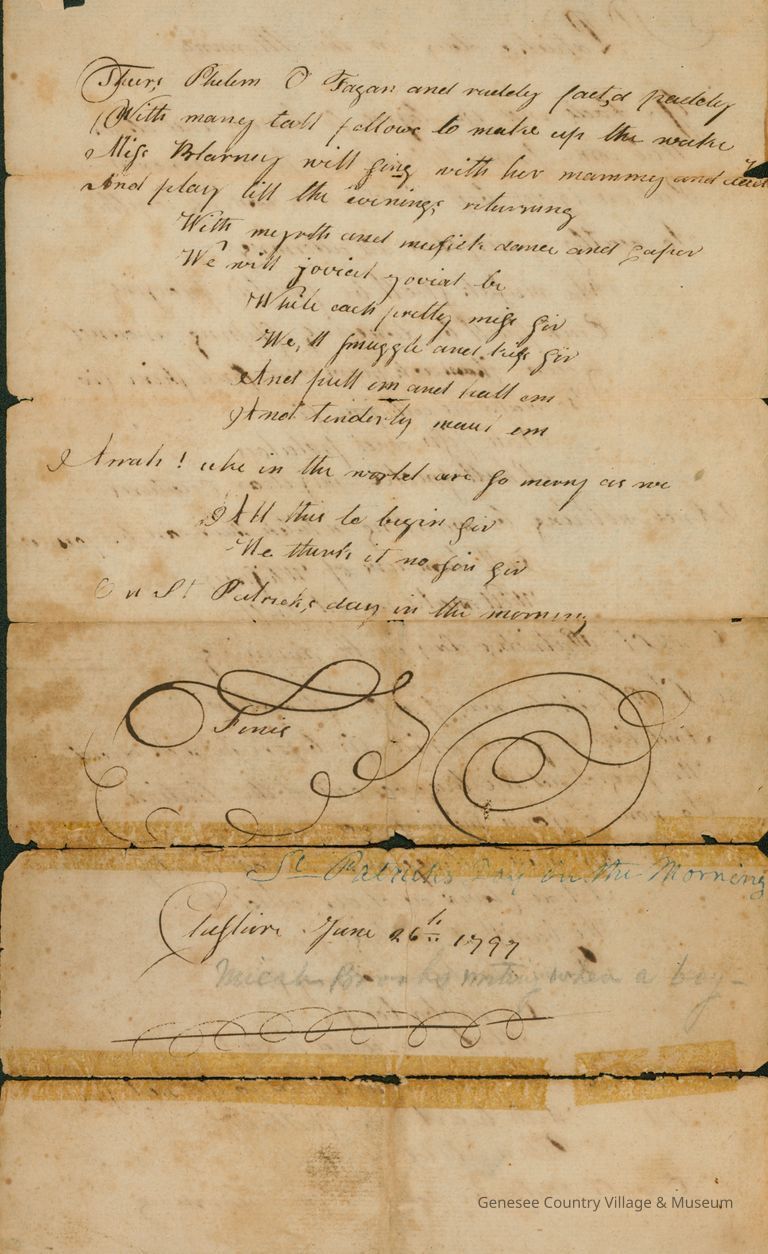 Thers Phelem O Fagan and ruddy fact,d paddy
With many tall fellows to make up the wake
Miss Blarney will sing with her mammy and dad
And play till the evenings returning
With myrth and musick dance and caper
We will jovial jovial be
While each pretty miss sir
We,ll smuggle and kiss sir
And pull em and hall em
And tenderly maul em
Arrah! who in the world are so merry as we
All this to begin sir
We think it no sin sir
On St Patricks day in the morning
Finis
St Patricks Day in the Morning
Cheshire June 26th 1797
Micah Brooks writing when a boy-
Genesee Country Village & Museum